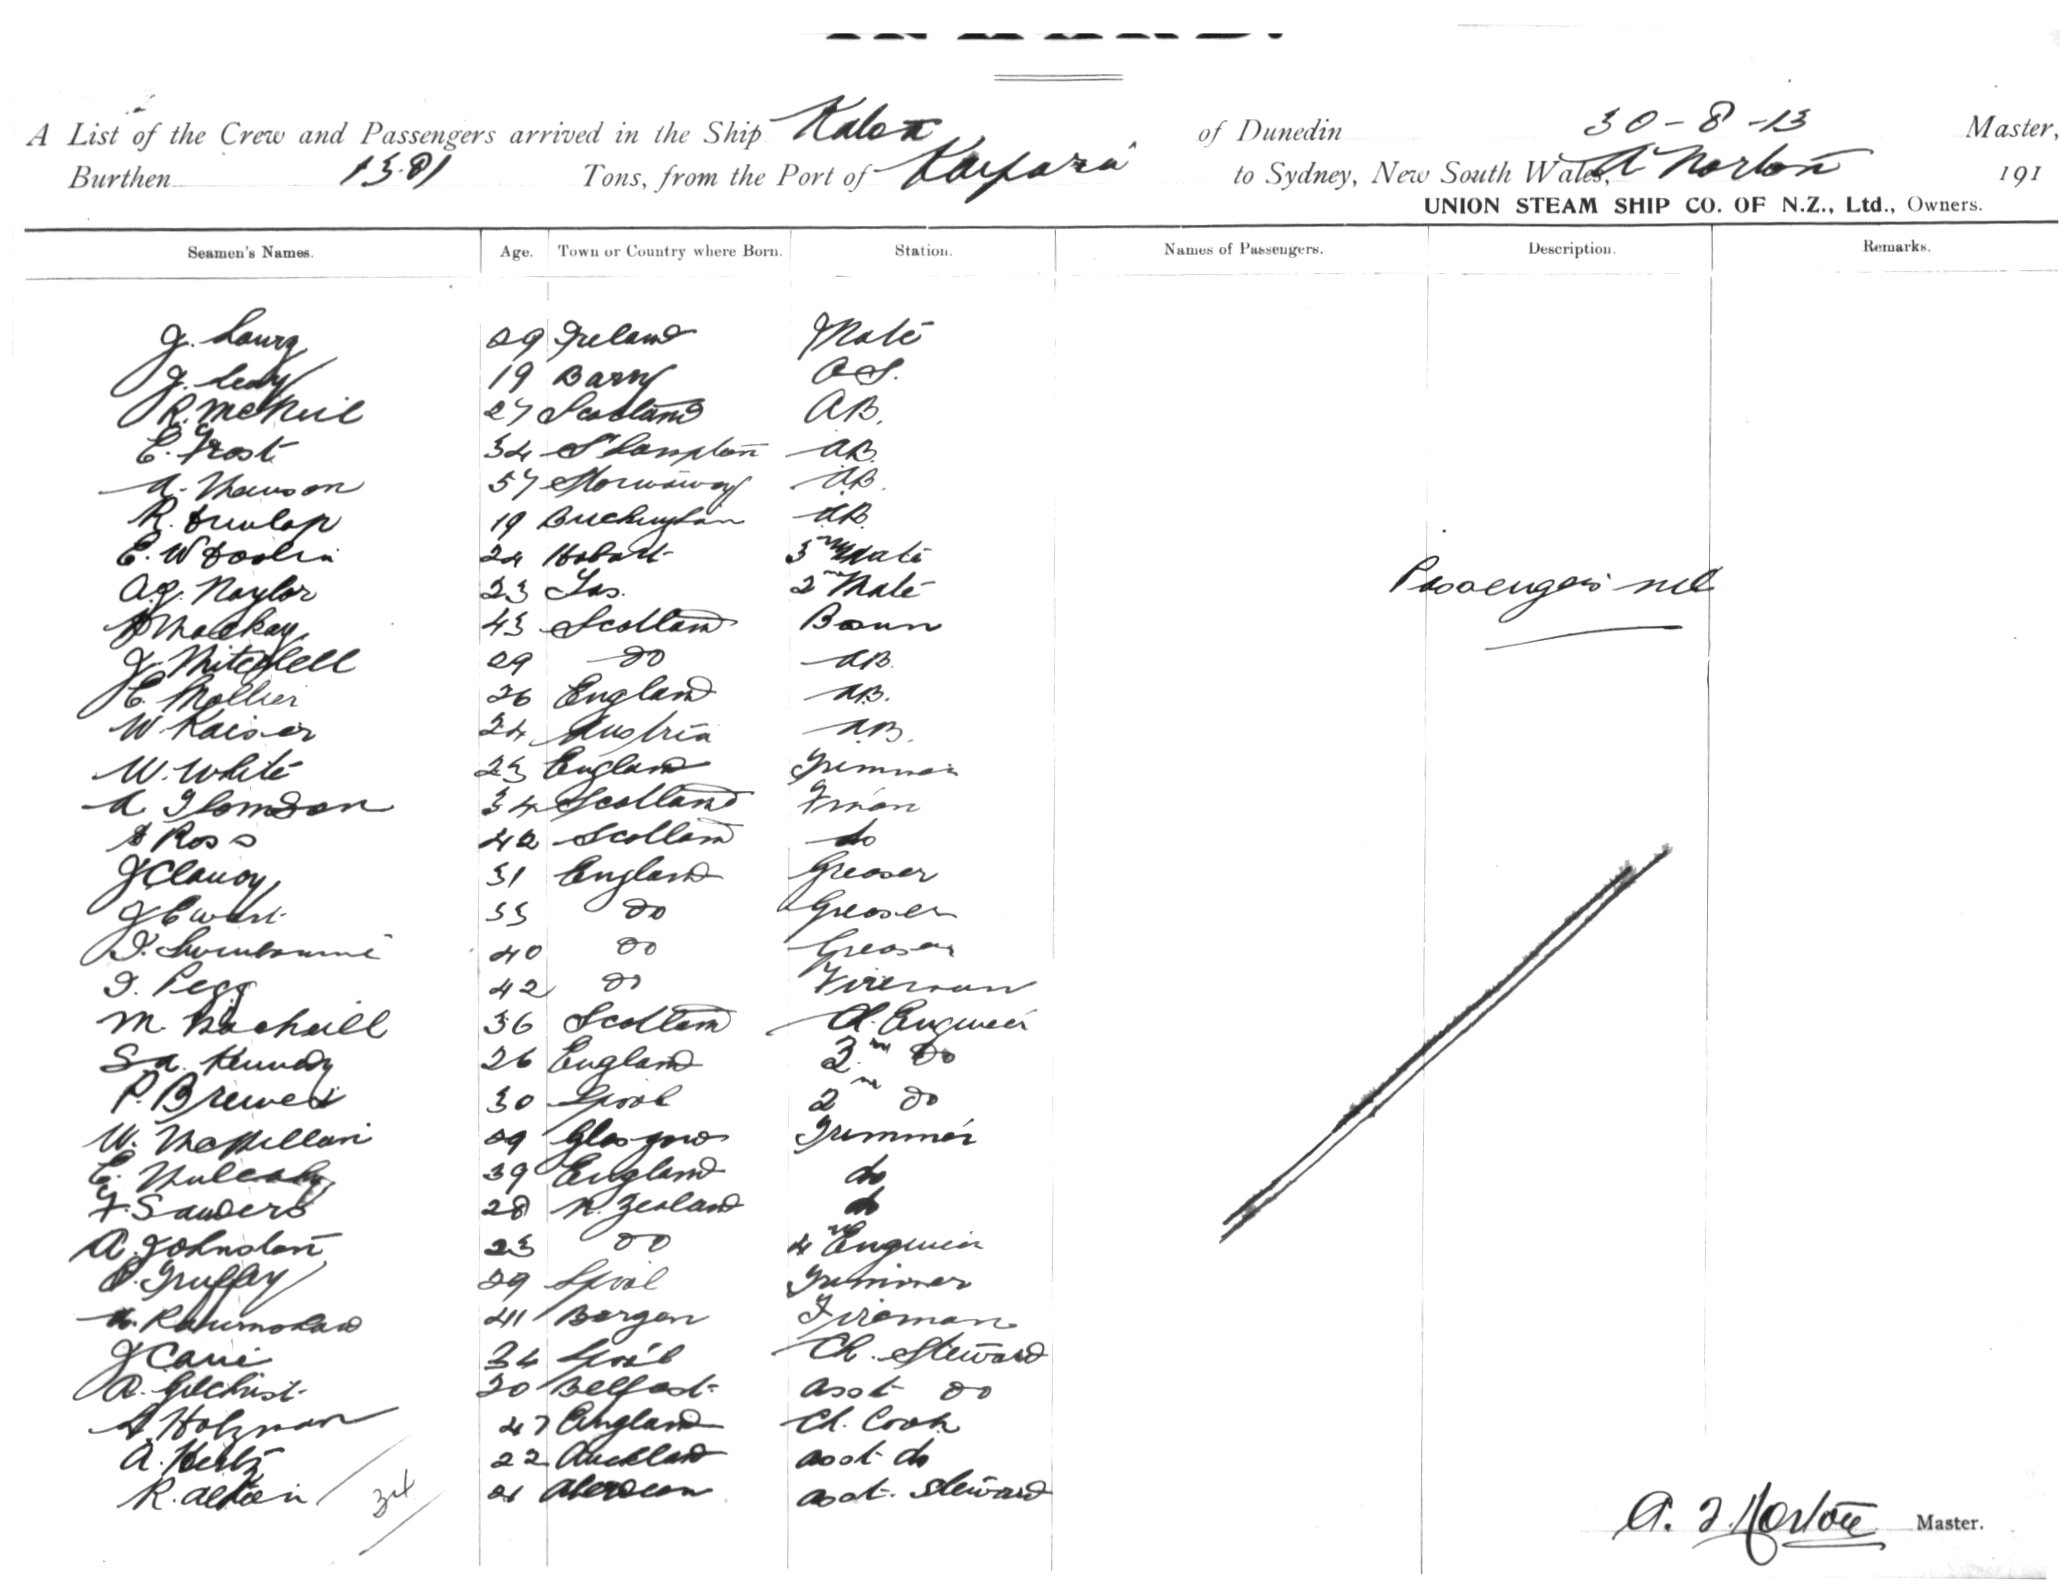 A List of the Crew and Passengers arrived in the Ship of Dunedin 30-8-13 Master,
Burthen 1381 Tons, from the Port of Kaipara to Sydney, New South Wales, A Norton 191
UNION STEAM SHIP CO. OF N.Z., Ltd., Owners.
Seamen's Names. Age. Town or Country where Born. Station. Names of Passengers. Description. Remarks.
J. 29 Ireland Mate
J. 19 Barry O.S.
R. McNeil 27 Scotland A.B.
E. Frost 34 S'hampton A.B.
A. 57 A.B.
R. Dunlop 19 A.B.
E. W 24 Hobart 3rd Mate
A.J. Naylor 23 Tas. 2nd Mate
Mackay 43 Scotland Bosun
J. Mitchell 29 do A.B.
C. Mollier 26 England A.B.
W Kaiser 24 Austria A.B.
W. White 23 England Trimmer
A 34 Scotland F'man
Ross 42 Scotland do
J Clancy 31 England Greaser
J Ewart 33 do Greaser
Swinbourne 40 do Greaser
Pegg 42 do Fireman
M. 36 Scotland Ch. Engineer
S.A. Kennedy 26 England 3rd do
P. Brewer 30 L'pool 2nd do
W. McMillan 29 Glasgow Trimmer
E. Mulcahy 39 England do
F. Sanders 28 N. Zealand do
A. Johnston 23 do 4th Engineer
29 L'pool Trimmer
41 Bergen Fireman
J 34 L'pool Ch. Steward
A. Gilchrist 20 Belfast asst do
Holzman 47 England Ch. Cook
A. 22 Auckland asst do
R. 21 Aberdeen asst. Steward
34
Passengers nil
A. J. Norton Master.